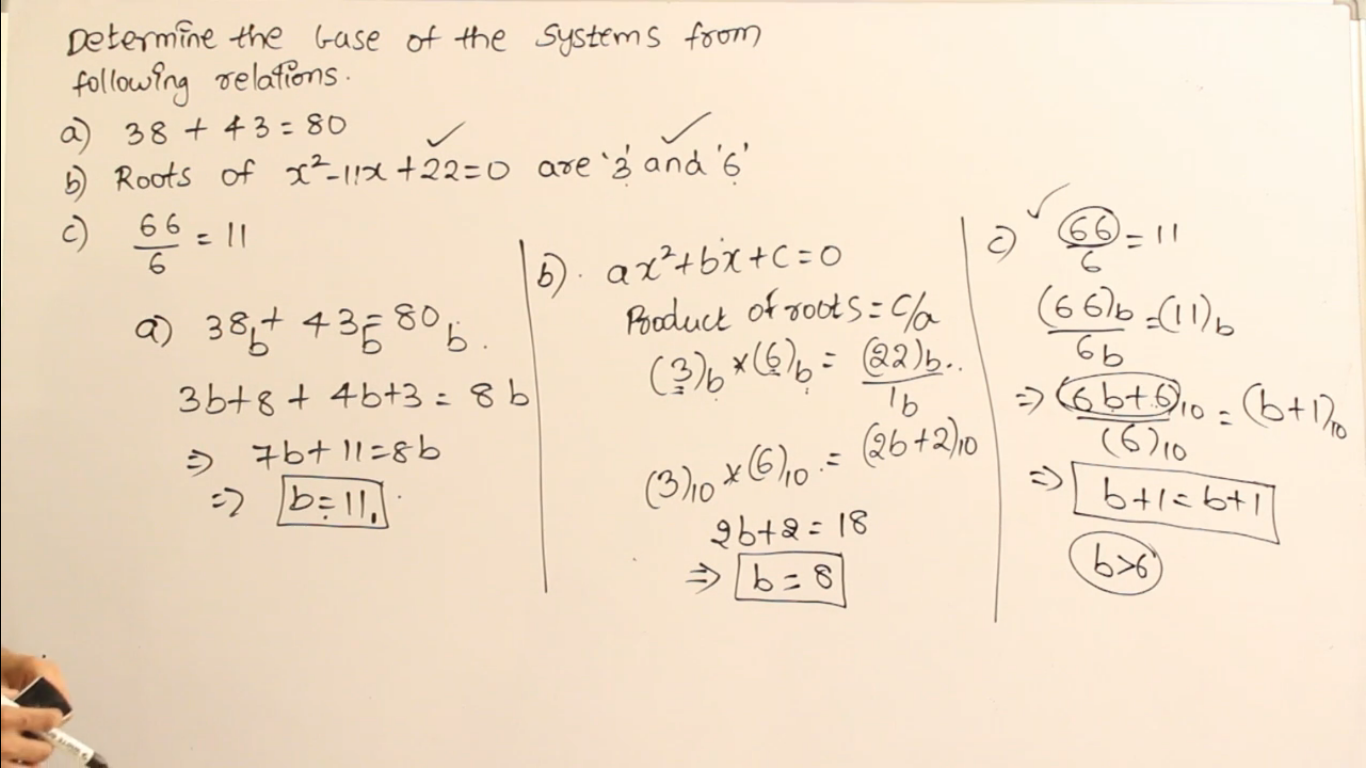 Determine the base of the systems from
following relations.
a) 38 + 43 = 80
b) Roots of x²-11x+22=0 are '3' and '6'
c) 66/6 = 11
a) 38b + 43b = 80b.
3b+8 + 4b+3 = 8b
⇒ 7b+11=8b
⇒ b=11.
b). ax²+bx+c=0
Product of roots = c/a
(3)b × (6)b = (22)b/1b
(3)10 × (6)10 = (2b+2)10
2b+2 = 18
⇒ b = 8
c) 66/6 = 11
(66)b/6b = (11)b
⇒ (6b+6)10/(6)10 = (b+1)10
⇒ b+1 = b+1
b>6